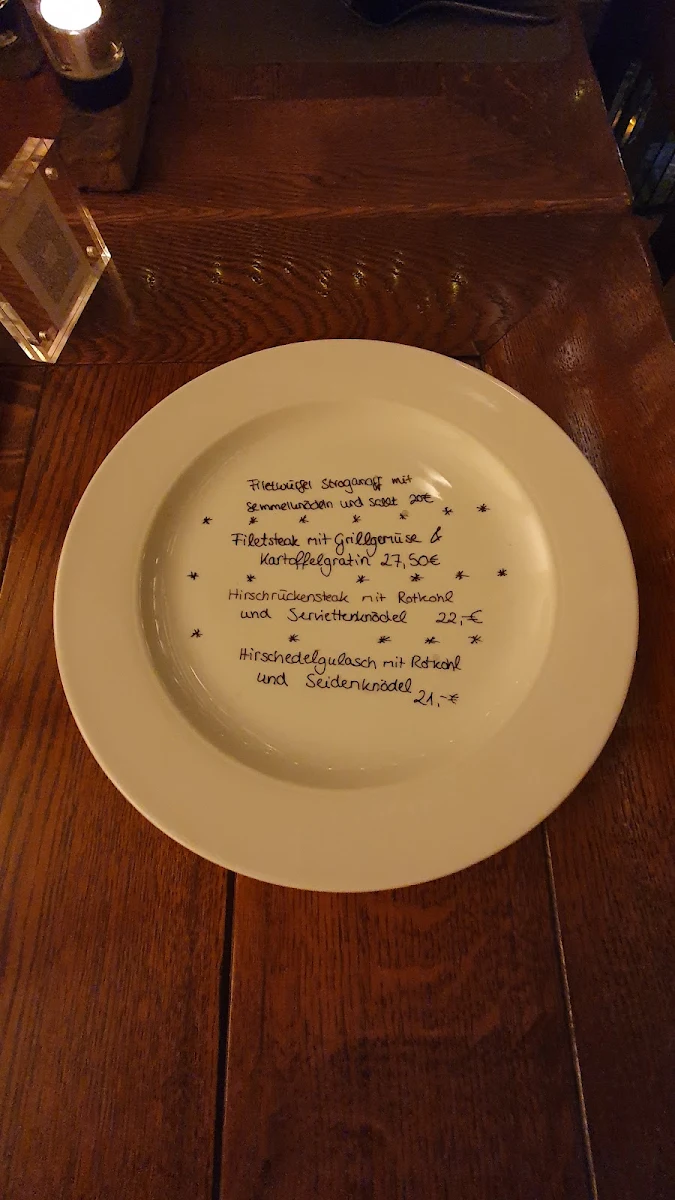 Filetwürfel Stroganoff mit
Semmelknödeln und Salat 20€
* * * * * * *
Filetsteak mit Grillgemüse &
Kartoffelgratin 27,50€
* * * * * *
Hirschrückensteak mit Rotkohl
und Serviettenknödel 22,-€
* * * * *
Hirschedelgulasch mit Rotkohl
und Seidenknödel
21,-€